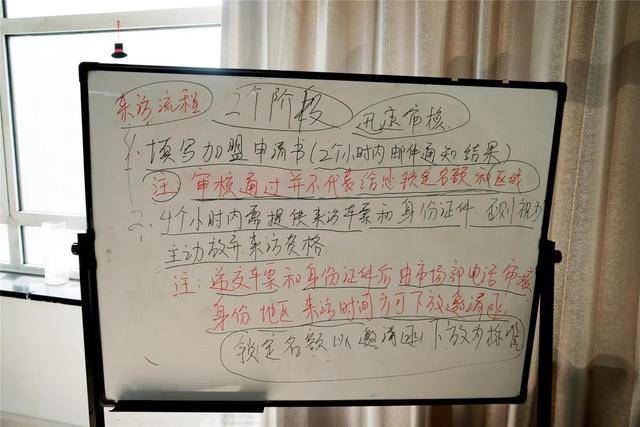 来访流程 2个阶段 迅速审核
1、填写加盟申请书(2个小时内邮件通知结果)
注: 审核通过并不代表给您锁定名额和区域
2、4个小时内需提供来访车票和身份证件 否则视为
主动放弃来访资格
注: 递交车票和身份证件后由市场部电话审核
身份 地区 来访时间方可下放邀请函
锁定名额以邀请函下放为标准